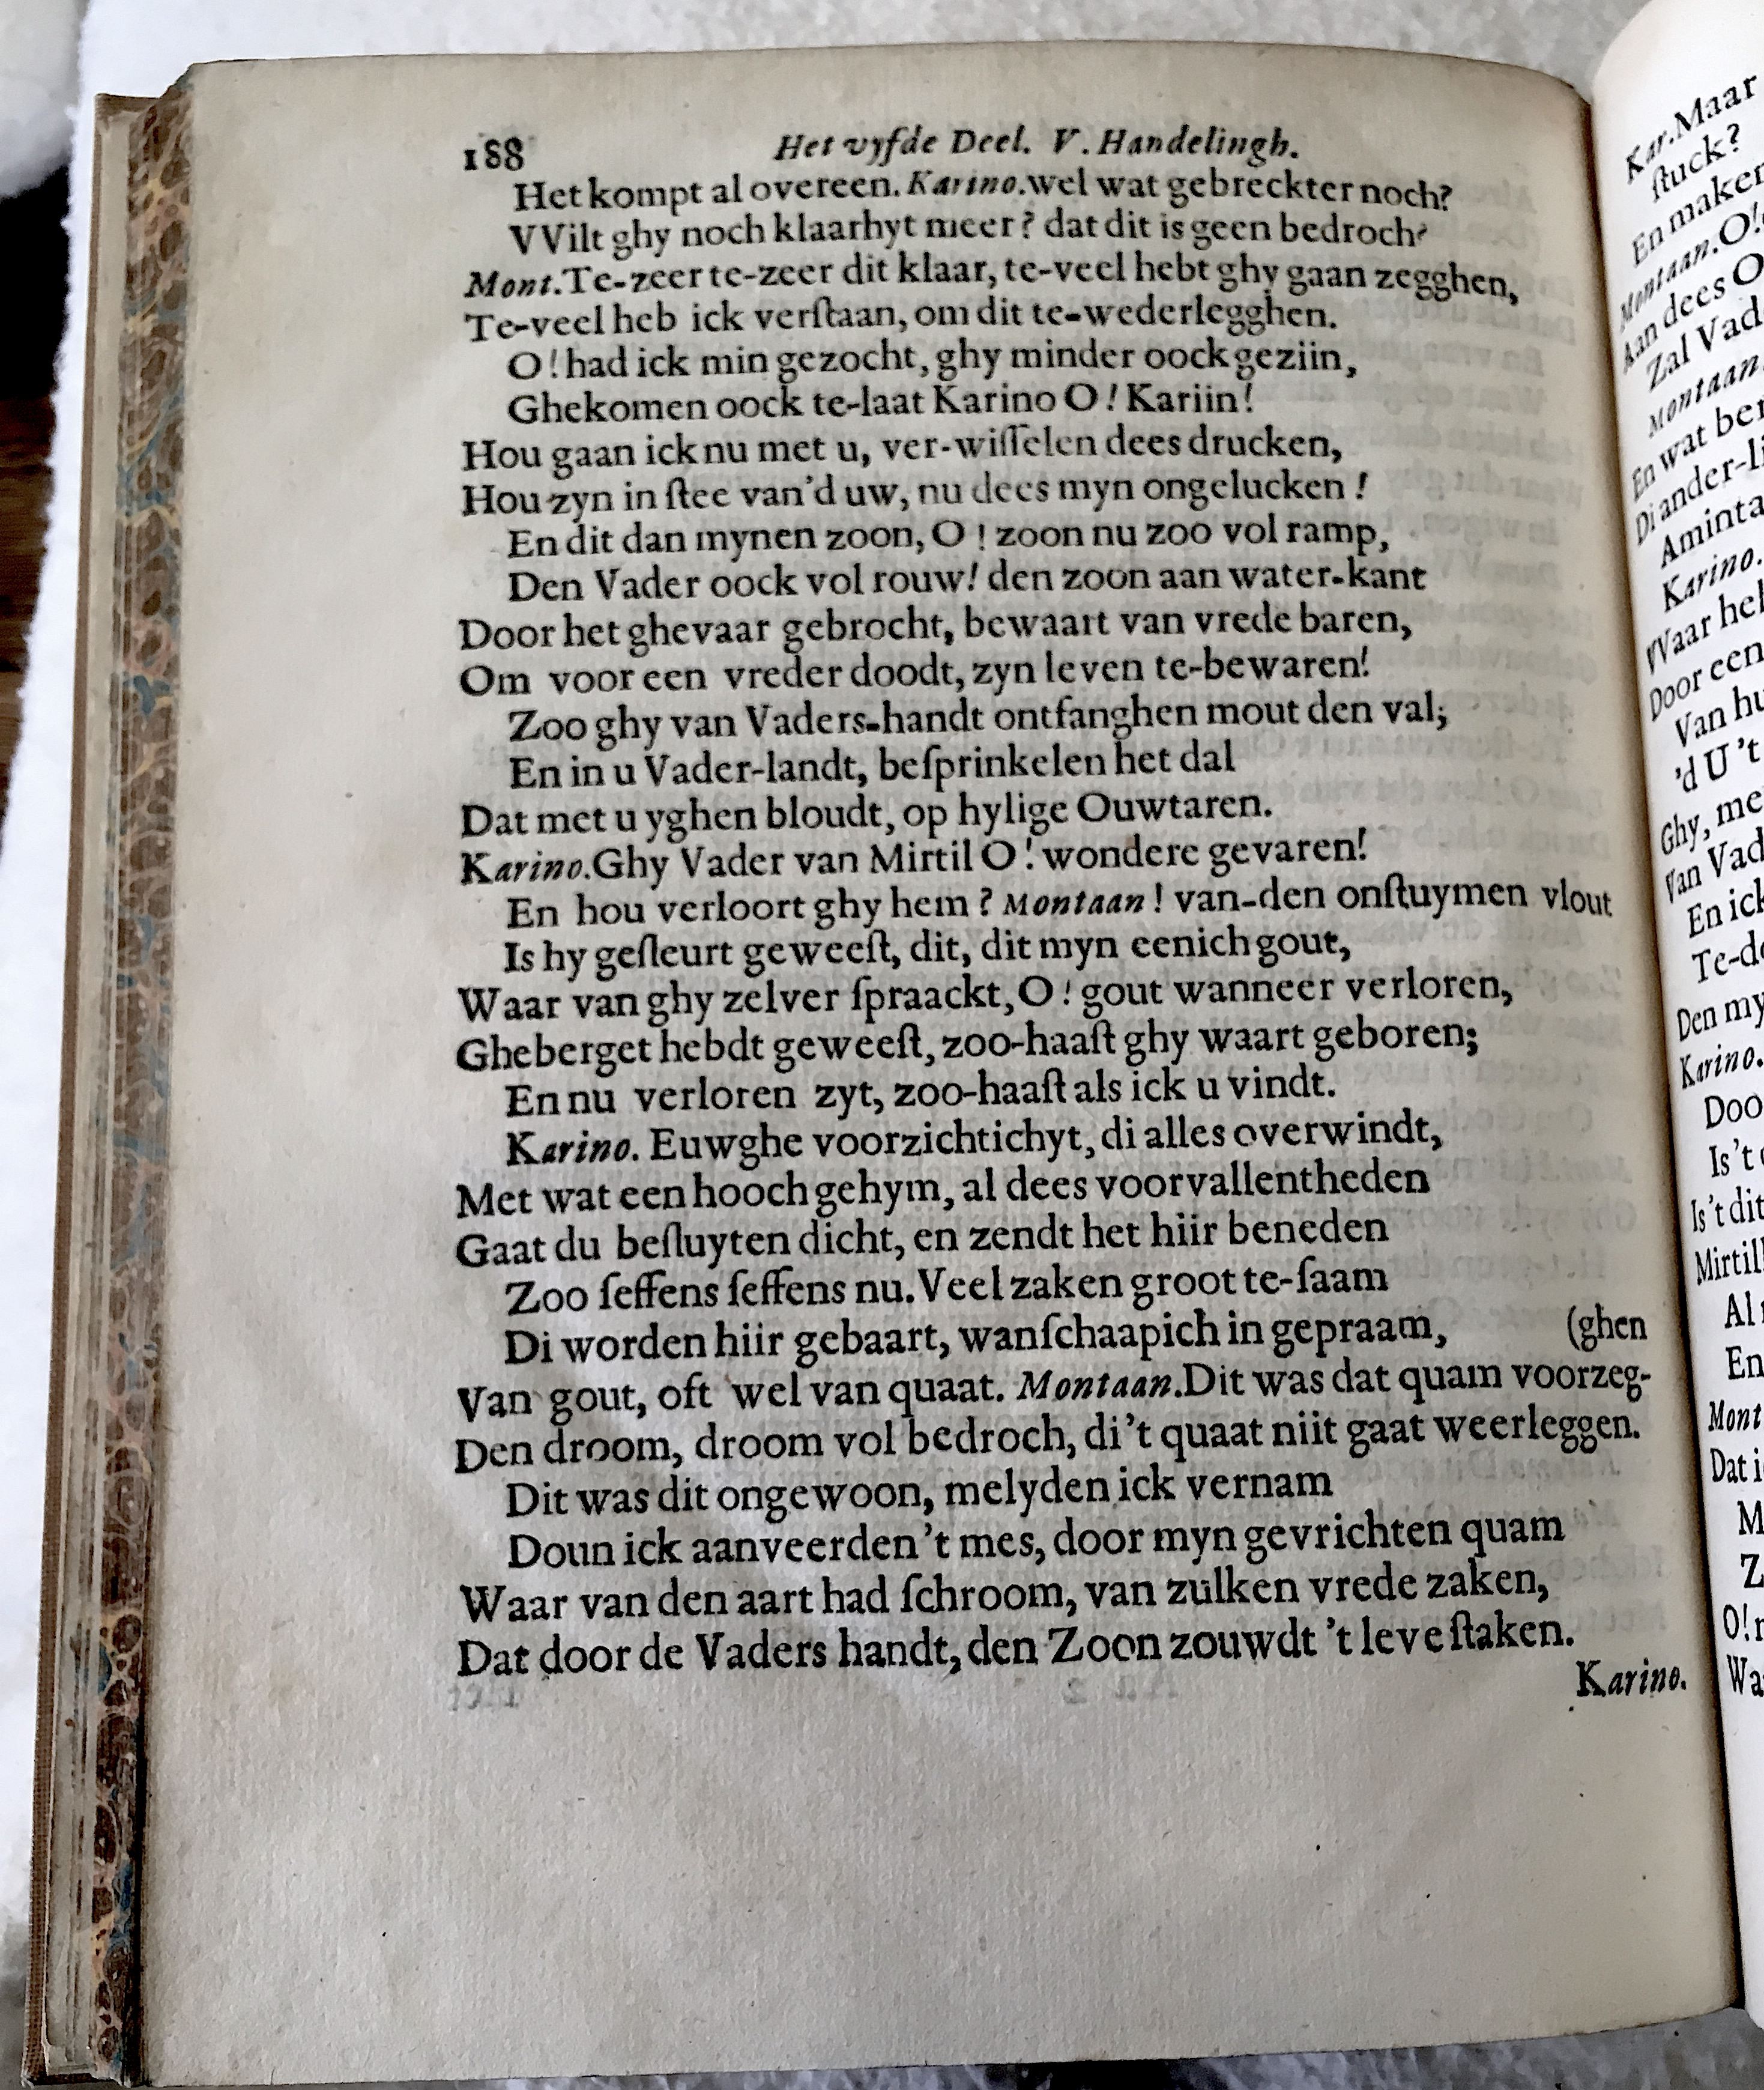 188 Het vyfde Deel. V. Handelingh.
Het kompt al overeen. Karino. wel wat gebreckter noch?
VVilt ghy noch klaarhyt meer? dat dit is geen bedroch?
Mont. Te-zeer te-zeer dit klaar, te-veel hebt ghy gaan zegghen,
Te-veel heb ick verſtaan, om dit te-wederlegghen.
O! had ick min gezocht, ghy minder oock geziin,
Ghekomen oock te-laat Karino O! Kariin!
Hou gaan ick nu met u, ver-wiſſelen dees drucken,
Hou zyn in ſtee van'd uw, nu dees myn ongelucken!
En dit dan mynen zoon, O! zoon nu zoo vol ramp,
Den Vader oock vol rouw! den zoon aan water-kant
Door het ghevaar gebrocht, bewaart van vrede baren,
Om voor een vreder doodt, zyn leven te-bewaren!
Zoo ghy van Vaders-handt ontfanghen mout den val;
En in u Vader-landt, beſprinkelen het dal
Dat met u yghen bloudt, op hylige Ouwtaren.
Karino. Ghy Vader van Mirtil O! wondere gevaren!
En hou verloort ghy hem? Montaan! van-den onſtuymen vlout
Is hy geſleurt geweeſt, dit, dit myn eenich gout,
Waar van ghy zelver ſpraackt, O! gout wanneer verloren,
Gheberget hebdt geweeſt, zoo-haaſt ghy waart geboren;
En nu verloren zyt, zoo-haaſt als ick u vindt.
Karino. Euwghe voorzichtichyt, di alles overwindt,
Met wat een hooch gehym, al dees voorvallentheden
Gaat du beſluyten dicht, en zendt het hiir beneden
Zoo ſeffens ſeffens nu. Veel zaken groot te-ſaam
Di worden hiir gebaart, wanſchaapich in gepraam, (ghen
Van gout, oft wel van quaat. Montaan. Dit was dat quam voorzeg-
Den droom, droom vol bedroch, di't quaat niit gaat weerleggen.
Dit was dit ongewoon, melyden ick vernam
Doun ick aanveerden't mes, door myn gevrichten quam
Waar van den aart had ſchroom, van zulken vrede zaken,
Dat door de Vaders handt, den Zoon zouwdt 't leve ſtaken.
Karino.
Kar. Maar
ſtuck?
En maken
Montaan. O!
Aan dees O
Zal Vad
Montaan.
En wat ber
Di ander-li
Aminta
Karino.
VVaar heb
Door een
Van hu
'd U 't
Ghy, me
Van Vad
En ick
Te-do
Den my
Karino.
Doo
Is 't
Is 't dit
Mirtil!
Al
En
Mont
Dat i
M
Z
O!
Wa